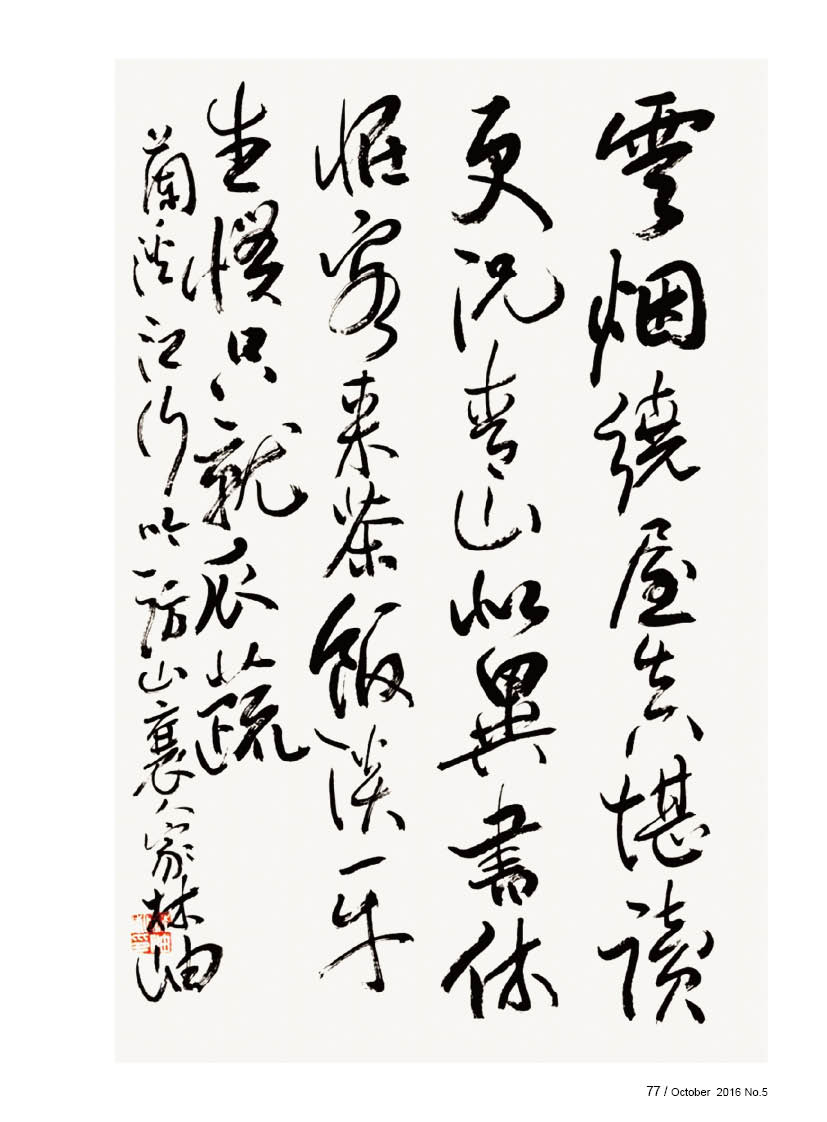 雲烟繞屋真堪讀
更況青山似異書休
怪客來茶飯淡平
生慣只就瓜蔬
蘭溪江行吟訪山裏人家林岫
77 / October 2016 No.5